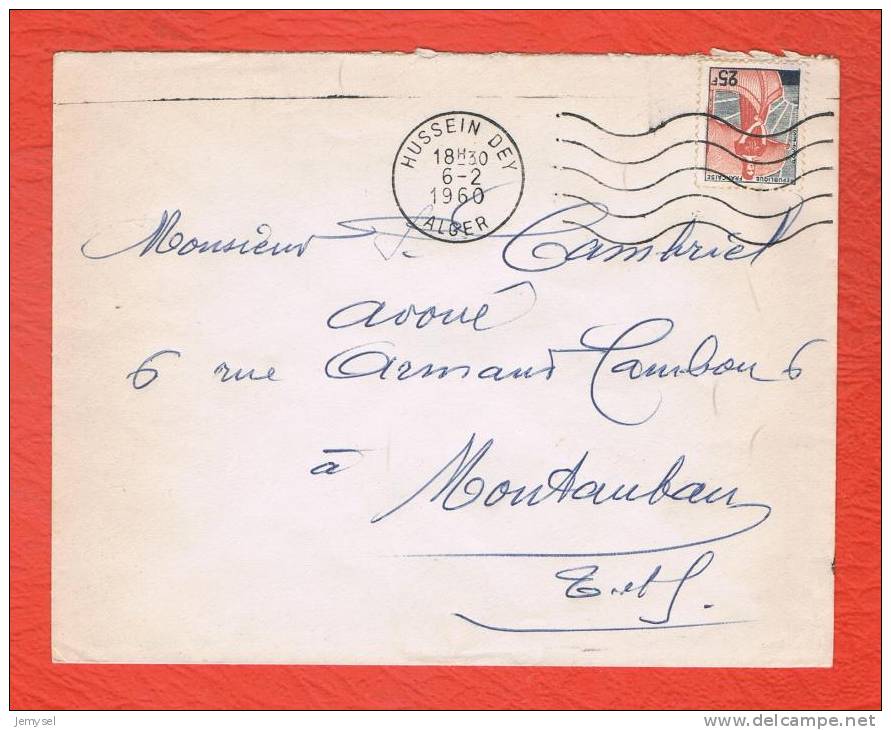 HUSSEIN DEY
18H30
6-2
1960
ALGER
25F
REPUBLIQUE FRANCAISE
Monsieur Cambriel
avoué
6 rue Armand Cambon 6
à
Montauban
T. et G.
Jemysel
www.delcampe.net